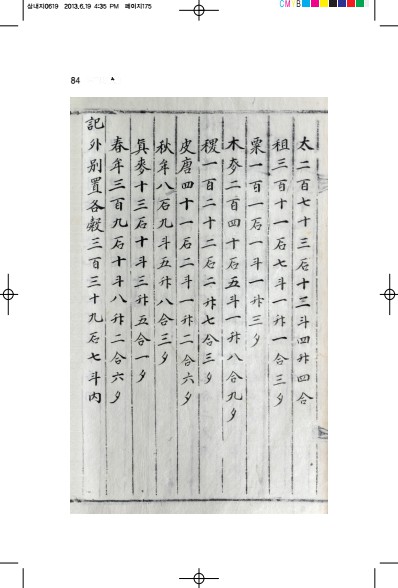 삼내지0619 2013.6.19 4:35 PM 페이지175
CM B
84
太二百七十三石十三斗四升四合
租三百十一石七斗一升一合三夕
粟一百一石一斗一升三夕
木麥二百四十石五斗一升八合九夕
稷一百二十二石二升七合三夕
皮唐四十一石二斗一升二合六夕
秋牟八石九斗五升八合三夕
眞麥十三石十斗三升五合一夕
春牟三百九石十斗八升二合六夕
記外別置各穀三百三十九石七斗內